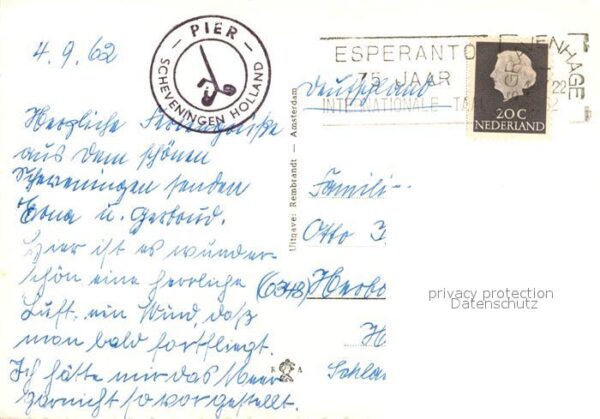 4.9.62
PIER
SCHEVENINGEN HOLLAND
ESPERANTO
75 JAAR
INTERNATIONALE TAAL
'S-GRAVENHAGE
22
20C
NEDERLAND
Deutschland
Herzliche
aus dem schönen
Scheveningen senden
Erna u. Gertrud.
Hier ist es wunder-
schön eine herrliche
Luft. ein Wind, daß
man bald fortfliegt.
Ich hätte mir das Meer
garnicht so vorgestellt.
Uitgave: Rembrandt - Amsterdam
R A
Famili
Otto
(6348) Herbo
H
Schla
privacy protection
Datenschutz